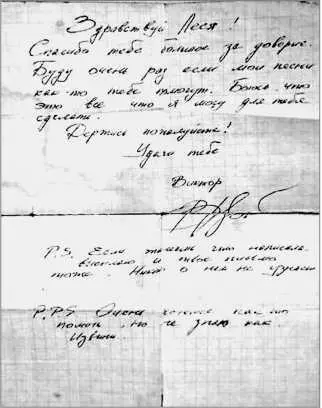 Здравствуй Леся!
Спасибо тебе большое за доверие.
Буду очень рад если мои песни
как-то тебе помогут. Боюсь что
это все что я могу для тебя
сделать.
Держись пожалуйста!
Удачи тебе
Виктор
P.S. Если
высылаю и твое письмо
тоже. Никто о нем не узнает
P.P.S Очень хочется как-то
помочь, но не знаю как.
Извини.